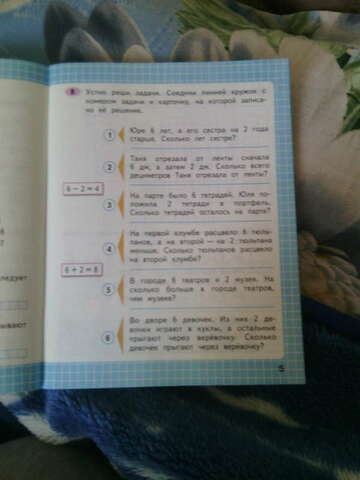 8 Устно реши задачи. Соедини линией кружок с
номером задачи и карточку, на которой записа-
но её решение.
1 Юре 6 лет, а его сестра на 2 года
старше. Сколько лет сестре?
2 Таня отрезала от ленты сначала
6 дм, а затем 2 дм. Сколько всего
дециметров Таня отрезала от ленты?
6 − 2 = 4
3 На парте было 6 тетрадей. Юля по-
ложила 2 тетради в портфель.
Сколько тетрадей осталось на парте?
4 На первой клумбе расцвело 6 тюль-
панов, а на второй — на 2 тюльпана
меньше. Сколько тюльпанов расцвело
на второй клумбе?
6 + 2 = 8
5 В городе 6 театров и 2 музея. На
сколько больше в городе театров,
чем музеев?
6 Во дворе 6 девочек. Из них 2 де-
вочки играют в куклы, а остальные
прыгают через верёвочку. Сколько
девочек прыгают через верёвочку?
5
следует
ывают